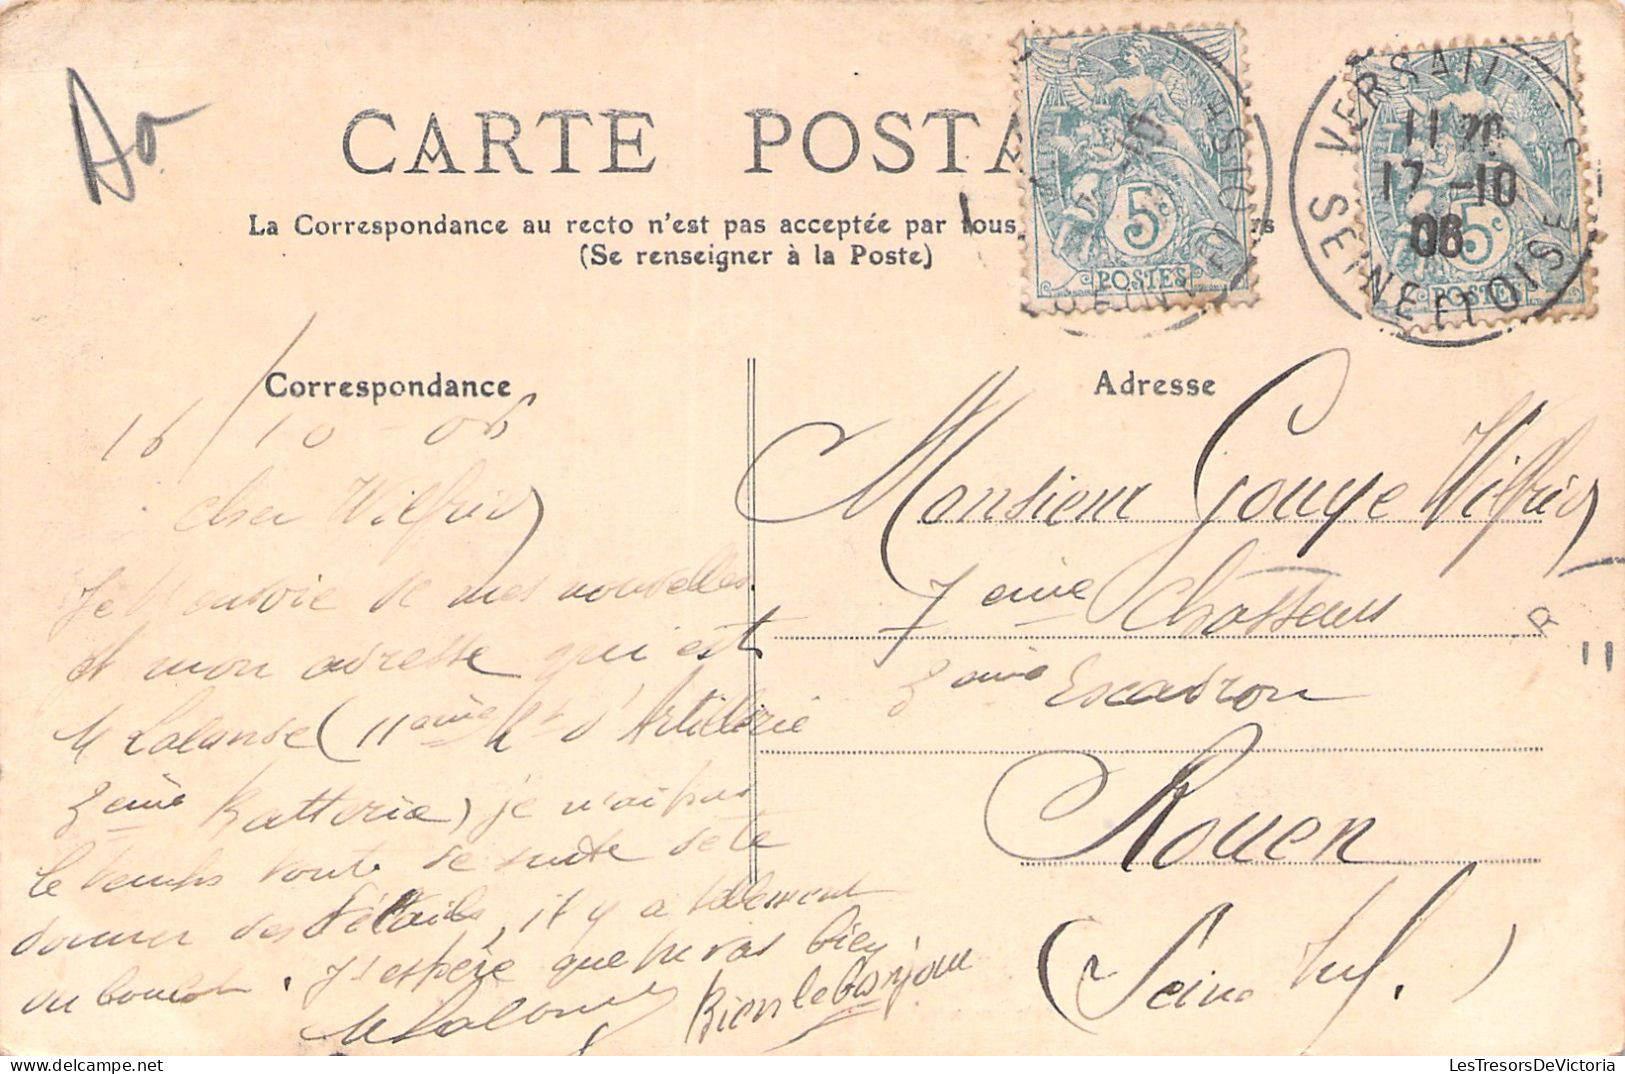 CARTE POSTA
La Correspondance au recto n'est pas acceptée par tous
rs
(Se renseigner à la Poste)
5c
POSTES
VERSAILL
SEINE ET OISE
11 20
17 -10
06
5c
POSTES
Ao
Correspondance
Adresse
16/10-06
cher Wilfrid
Je t'envoie de mes nouvelles
et mon adresse qui est
M Lalande (11ème Rt d'Artillerie
3ème Batterie) je n'ai pas
le temps tout de suite de te
donner des détails, il y a tellement
du boulot. J'espère que tu vas bien
Bien le bonjour
M Lalande
Monsieur Gouye Wilfrid
7ème Chasseurs
3ème Escadron
Rouen
(Seine Inf.)
LesTresorsDeVictoria